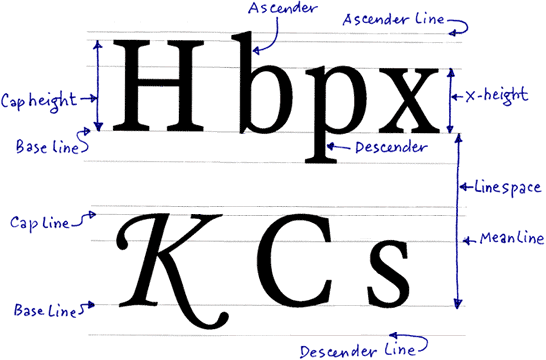 Ascender
Ascender Line
H b p x
Cap height
X-height
Base line
Descender
Linespace
Cap Line
K C s
Meanline
Base Line
Descender Line